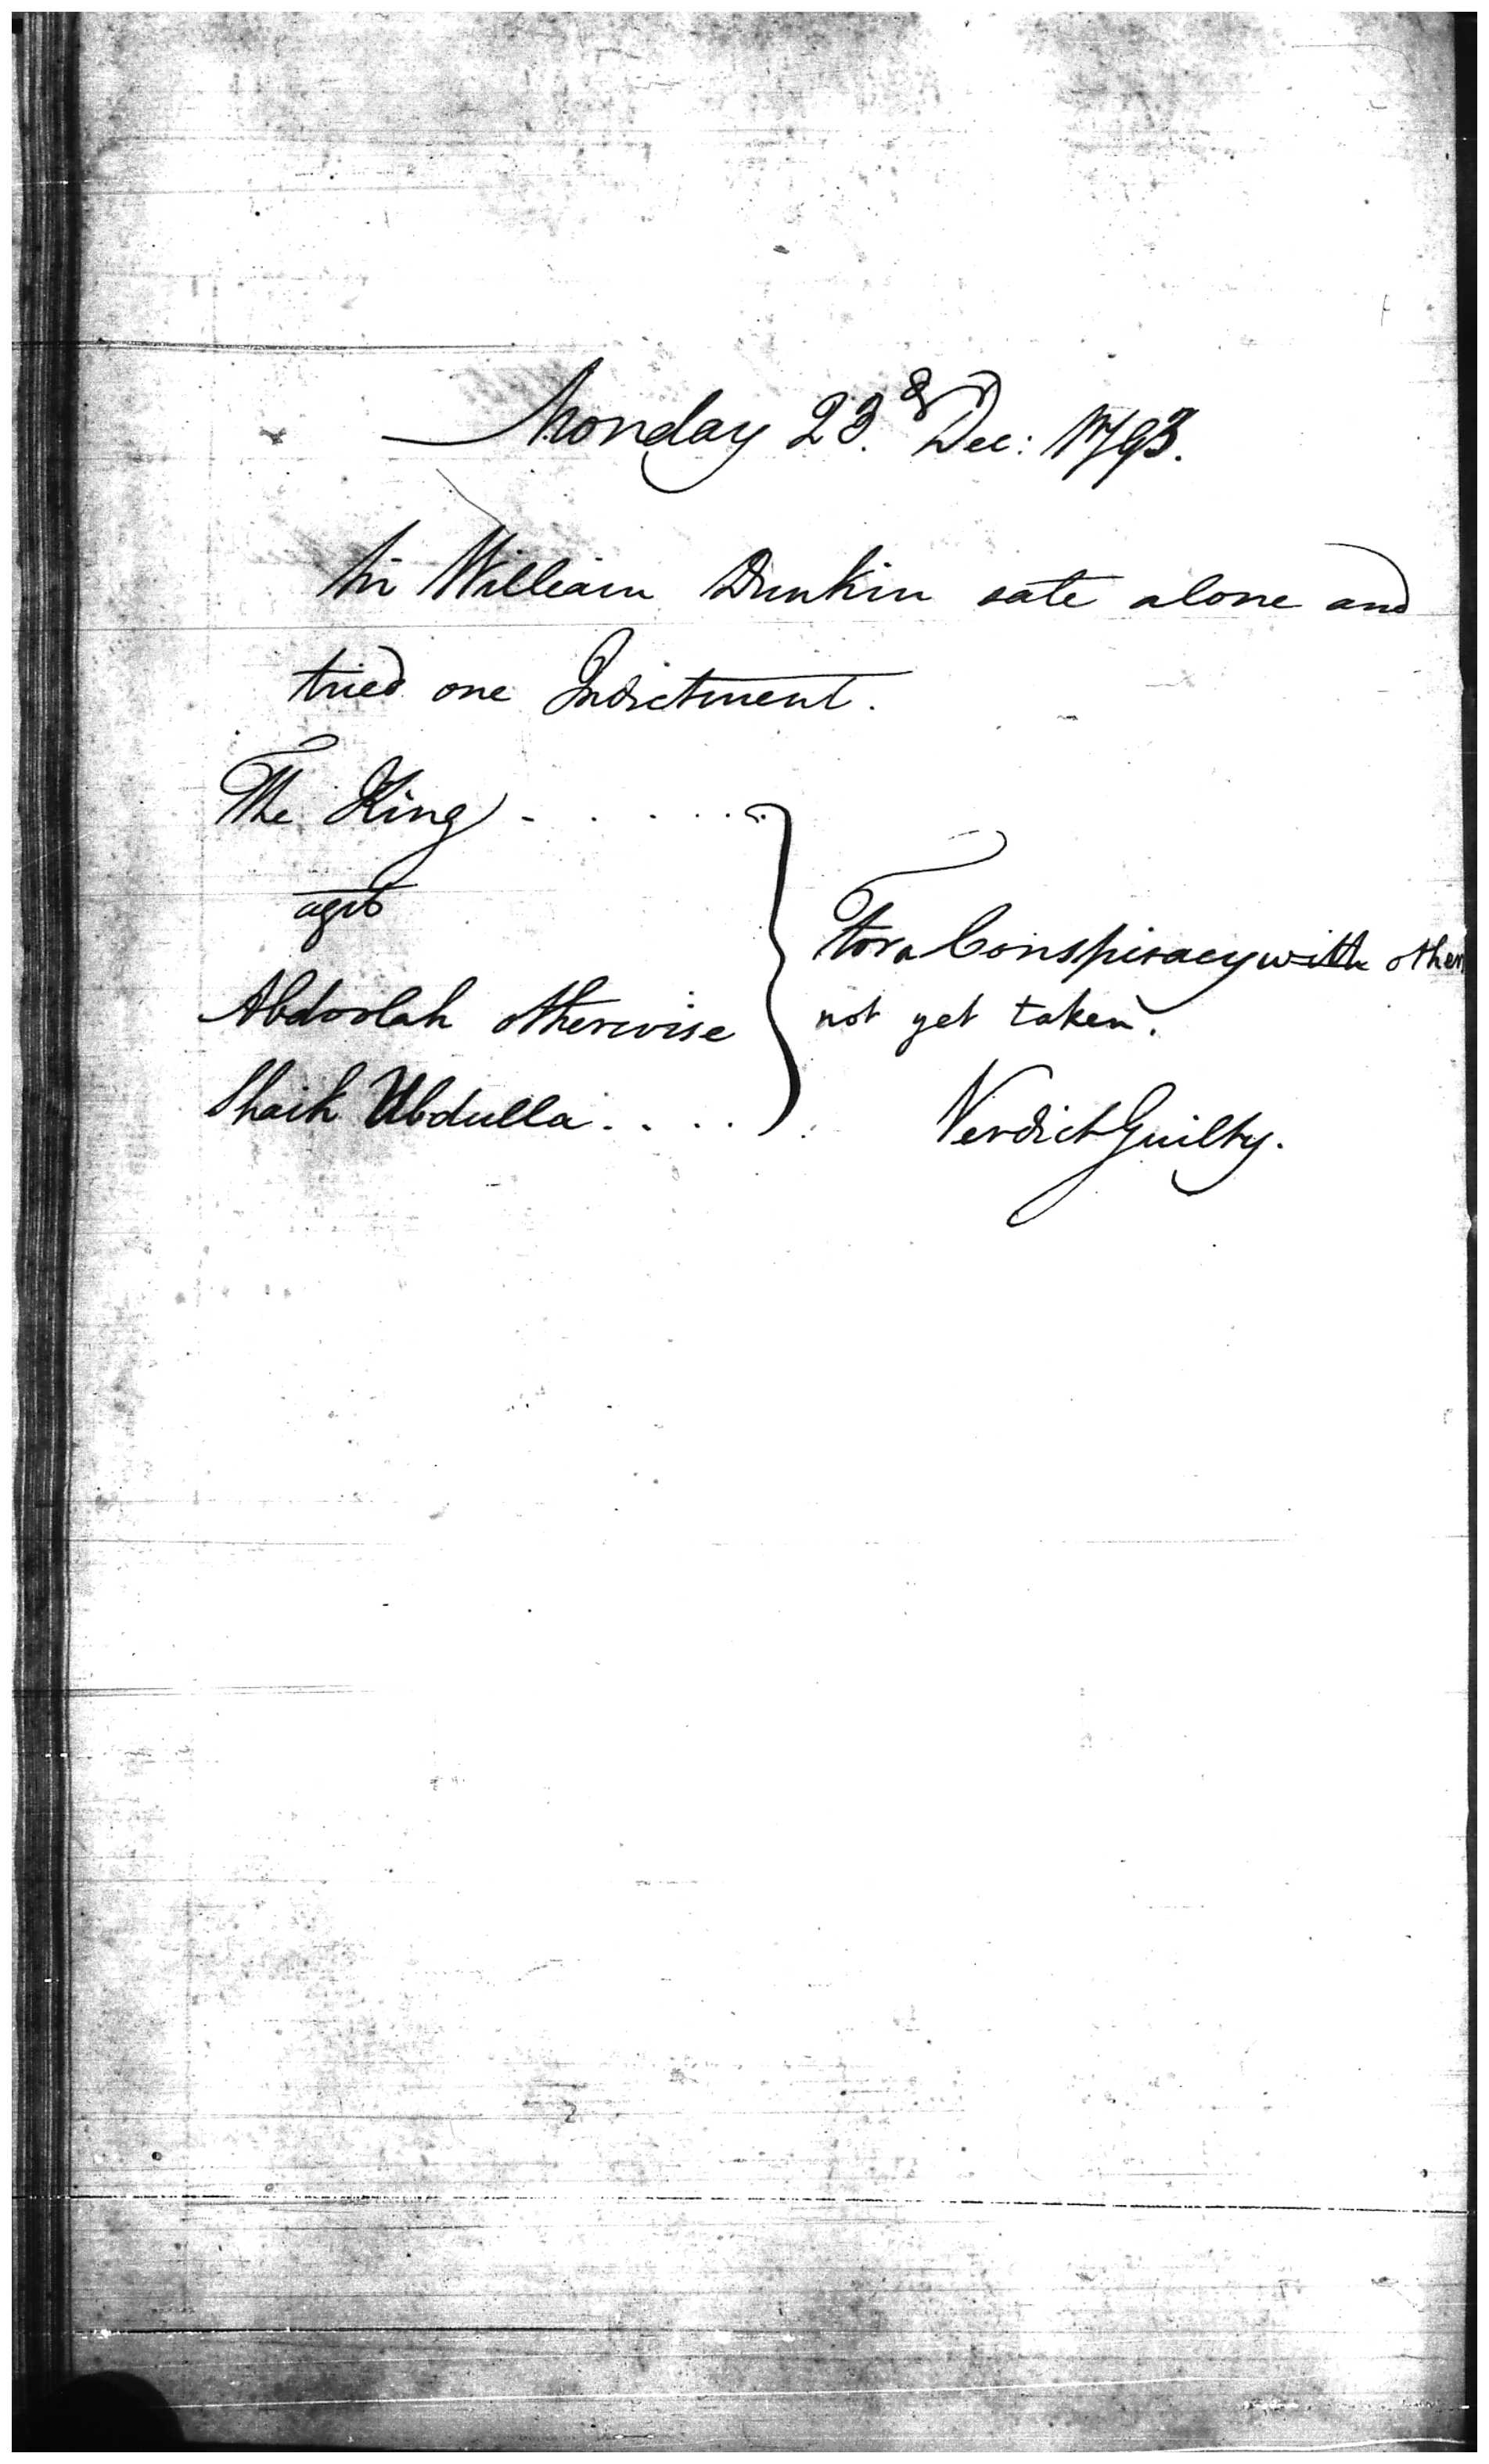 Monday 23.d Dec: 1793.
Sir William Dunkin sate alone and
tried one Indictment.
The King - . . . . . .
agst
Abdoolah otherwise
Shaik Ubdulla . . . .
For a Conspiracy with others
not yet taken.
Verdict Guilty.